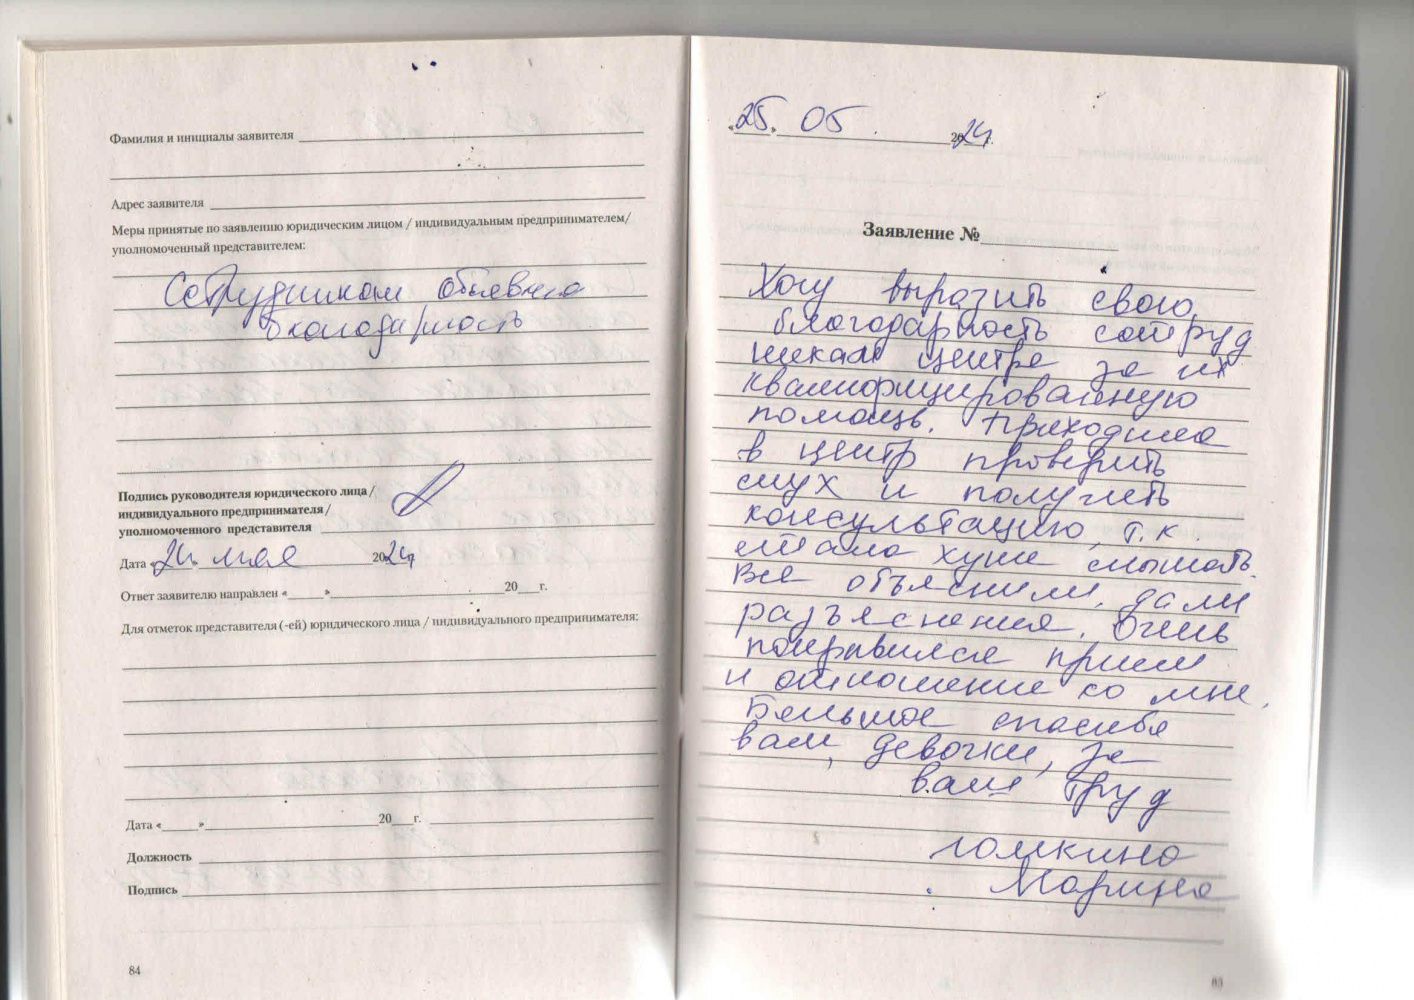 Фамилия и инициалы заявителя
Адрес заявителя
Меры принятые по заявлению юридическим лицом / индивидуальным предпринимателем/
уполномоченный представителем:
Сотрудникам объявлена
благодарность
Подпись руководителя юридического лица /
индивидуального предпринимателя /
уполномоченного представителя
Дата «24 мая 2024
Ответ заявителю направлен « » 20 г.
Для отметок представителя (-ей) юридического лица / индивидуального предпринимателя:
Дата « » 20 г.
Должность
Подпись
84
25. 05. 2024.
Заявление №
Хочу выразить свою
благодарность сотруд
никам центра за их
квалифицированную
помощь. Приходила
в центр проверить
слух и получить
консультацию, т.к
стала хуже слышать.
Все объяснили, дали
разъяснения. Очень
понравился прием
и отношение ко мне.
Большое спасибо
вам, девочки, за
ваш труд
Марина